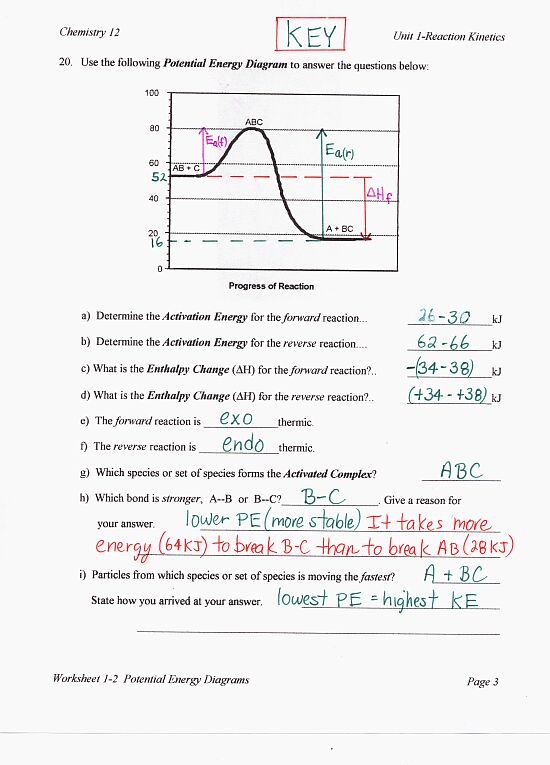 Chemistry 12
KEY
Unit 1-Reaction Kinetics
20. Use the following Potential Energy Diagram to answer the questions below:
100
80
60
52
40
20
16
0
ABC
Ea(f)
Ea(r)
AB + C
ΔHf
A + BC
Progress of Reaction
a) Determine the Activation Energy for the forward reaction... 26-30 kJ
b) Determine the Activation Energy for the reverse reaction.... 62-66 kJ
c) What is the Enthalpy Change (ΔH) for the forward reaction?.. -(34-38) kJ
d) What is the Enthalpy Change (ΔH) for the reverse reaction?.. (+34 - +38) kJ
e) The forward reaction is exo thermic.
f) The reverse reaction is endo thermic.
g) Which species or set of species forms the Activated Complex? ABC
h) Which bond is stronger, A--B or B--C? B-C. Give a reason for
your answer. lower PE (more stable) It takes more
energy (64KJ) to break B-C than to break AB (28KJ)
i) Particles from which species or set of species is moving the fastest? A + BC
State how you arrived at your answer. lowest PE = highest KE
Worksheet 1-2 Potential Energy Diagrams
Page 3